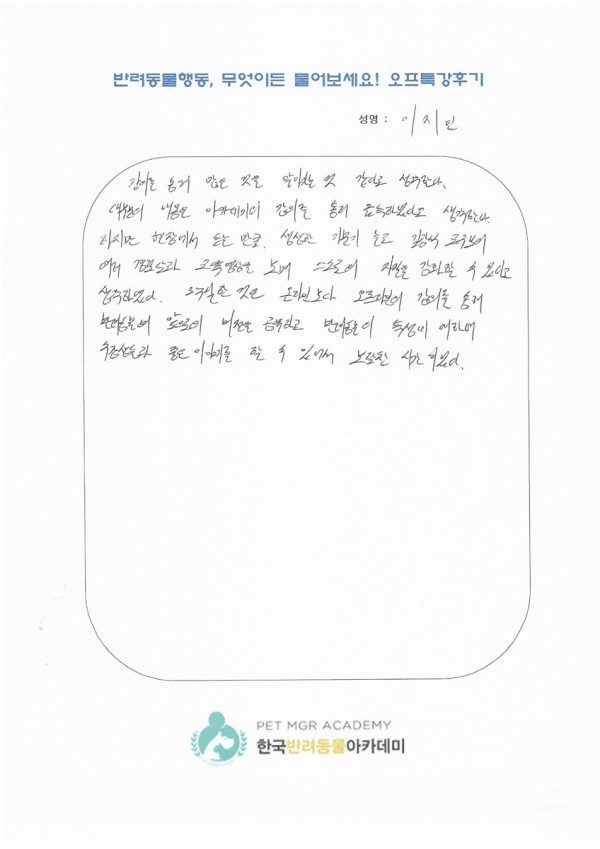 반려동물행동, 무엇이든 물어보세요! 오프특강후기
성명 : 이지민
강의를 통해 많은 것을 알아가는 것 같다고 생각한다.
대부분의 내용은 아카데미의 강의를 통해 습득하였다고 생각한다.
하지만 현장에서 듣는 만큼, 생생한 기분이 들고 교수님의
여러 경험담과 교육영상을 보며 스스로의 자질을 강화할 수 있다고
생각하였다. 것은 온라인보다 오프라인의 강의를 통해
반려동물의 앞으로의 비전을 공부하고 반려동물의 특성이 어떠며
수강생들과 좋은 이야기를 할 수 있어서 보람찬 시간이었다.
PET MGR ACADEMY
한국반려동물아카데미